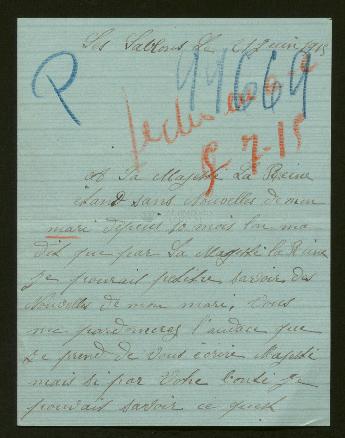 Les Sablons le 21 Juin 1915
P
99669
8-7-15
A Sa Majesté La Reine
étand sans Nouvelles de mon
mari depuis 10 mois lon ma
dit que par Sa Majesté la Reine
Je pourais petetre savoir des
Nouvelles de mon mari, Vous
me pardonnerez l'audace que
Je prend de Vous écrire Majesté
mais si par Votre bonté Je
pourais savoir ce quest